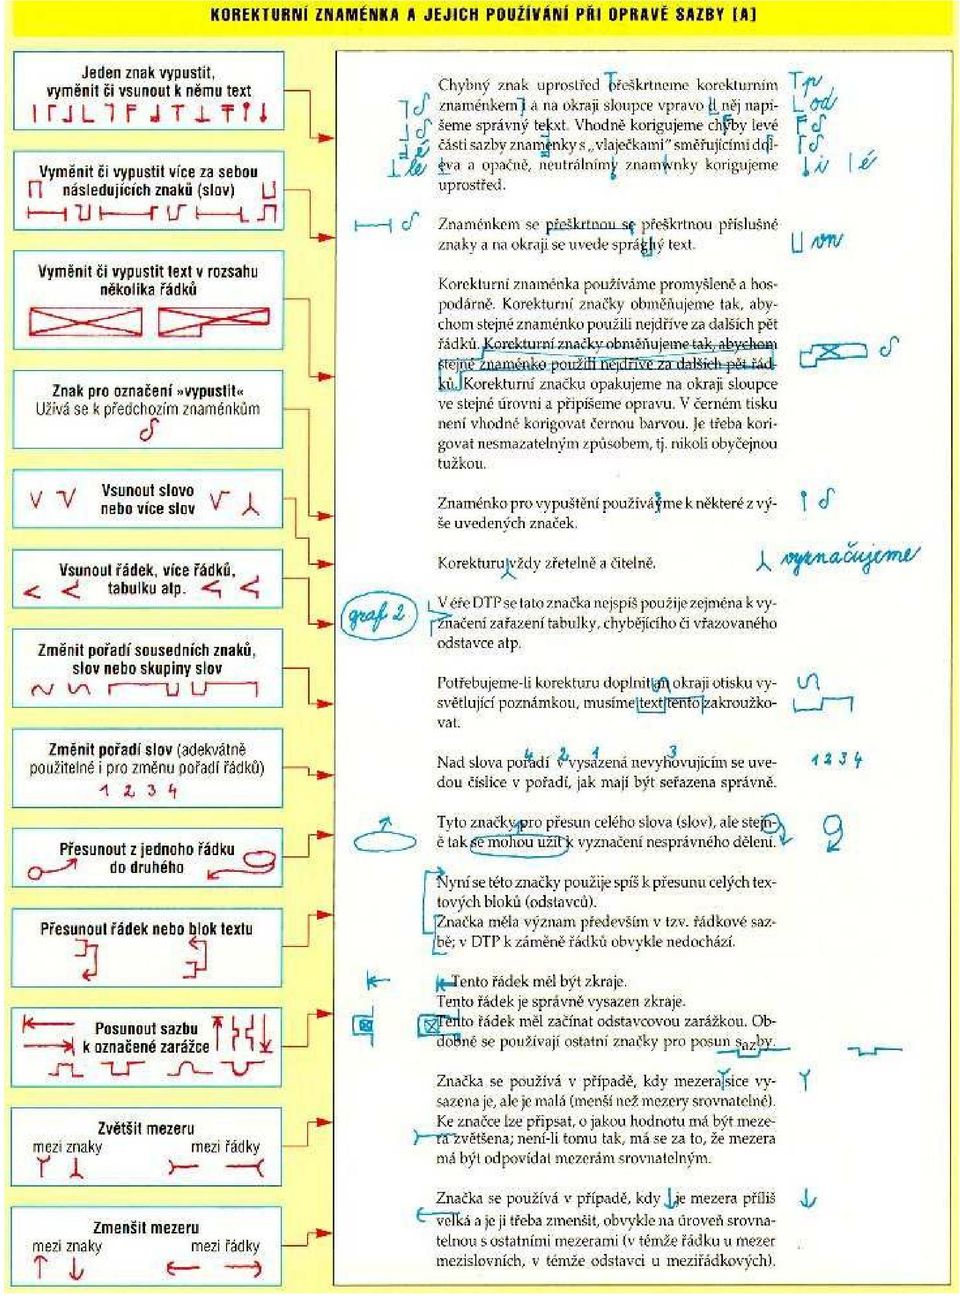 KOREKTURNÍ ZNAMÉNKA A JEJICH POUŽÍVÁNÍ PŘI OPRAVĚ SAZBY [A]
Jeden znak vypustit,
vyměnit či vsunout k němu text
Vyměnit či vypustit více za sebou
následujících znaků (slov)
Vyměnit či vypustit text v rozsahu
několika řádků
Znak pro označení »vypustit«
Užívá se k předchozím znaménkům
Vsunout slovo
nebo více slov
Vsunout řádek, více řádků,
tabulku atp.
Změnit pořadí sousedních znaků,
slov nebo skupiny slov
Změnit pořadí slov (adekvátně
použitelné i pro změnu pořadí řádků)
1 2 3 4
Přesunout z jednoho řádku
do druhého
Přesunout řádek nebo blok textu
Posunout sazbu
k označené zarážce
Zvětšit mezeru
mezi znaky mezi řádky
Zmenšit mezeru
mezi znaky mezi řádky
Chybný znak uprostřed přeškrtneme korekturním
znaménkem a na okraji sloupce vpravo u něj napí-
šeme správný tekxt. Vhodně korigujeme chyby levé
části sazby znaménky s „vlaječkami" směřujícími dol-
eva a opačně, neutrálními znamwnky korigujeme
uprostřed.
Znaménkem se přeškrtnou se přeškrtnou příslušné
znaky a na okraji se uvede sprághý text.
von
Korekturní znaménka používáme promyšleně a hos-
podárně. Korekturní značky obměňujeme tak, aby-
chom stejné znaménko použili nejdříve za dalších pět
řádků. Korekturní značky obměňujeme tak, abychom
stejné znaménko použili nejdříve za dalších pět řád-
ků. Korekturní značku opakujeme na okraji sloupce
ve stejné úrovni a připíšeme opravu. V černém tisku
není vhodné korigovat černou barvou. Je třeba kori-
govat nesmazatelným způsobem, tj. nikoli obyčejnou
tužkou.
Znaménko pro vypuštění používáýme k některé z vý-
še uvedených značek.
Korekturu vždy zřetelně a čitelně.
vyznačujeme
graf 2
V éře DTP se tato značka nejspíš použije zejména k vy-
značení zařazení tabulky, chybějícího či vřazovaného
odstavce atp.
Potřebujeme-li korekturu doplnit an okraji otisku vy-
světlující poznámkou, musíme text tento zakroužko-
vat.
4 2 1 3
Nad slova pořadí v vysázená nevyhovujícím se uve-
dou číslice v pořadí, jak mají být seřazena správně.
1 2 3 4
Tyto značky pro přesun celého slova (slov), ale stejn-
ě tak se mohou užít k vyznačení nesprávného dělení.
Nyní se této značky použije spíš k přesunu celých tex-
tových bloků (odstavců).
Značka měla význam především v tzv. řádkové saz-
bě; v DTP k záměně řádků obvykle nedochází.
Tento řádek měl být zkraje.
Tento řádek je správně vysazen zkraje.
Tento řádek měl začínat odstavcovou zarážkou. Ob-
dobně se používají ostatní značky pro posun sazby.
Značka se používá v případě, kdy mezera sice vy-
sazena je, ale je malá (menší než mezery srovnatelné).
Ke značce lze připsat, o jakou hodnotu má být meze-
ra zvětšena; není-li tomu tak, má se za to, že mezera
má být odpovídat mezerám srovnatelným.
Značka se používá v případě, kdy je mezera příliš
velká a je ji třeba zmenšit, obvykle na úroveň srovna-
telnou s ostatními mezerami (v témže řádku u mezer
mezislovních, v témže odstavci u meziřádkových).